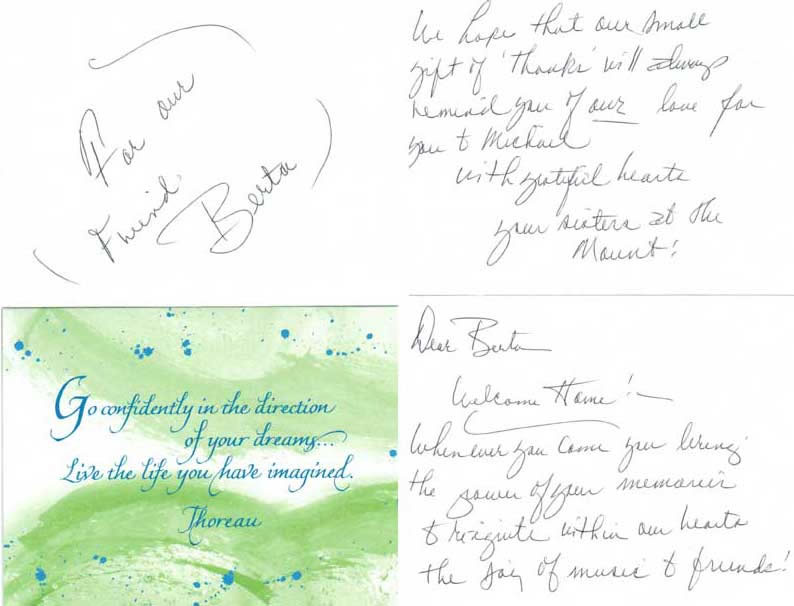 For our
Friend
Berta
We hope that our small
gift of 'thanks' will always
remind you of our love for
you & Michael
with grateful hearts
your sisters at the
Mount!
Go confidently in the direction
of your dreams...
Live the life you have imagined.
Thoreau
Dear Berta
Welcome Home!
Whenever you come you bring
the power of your memories
to reignite within our hearts
the joy of music & friends!